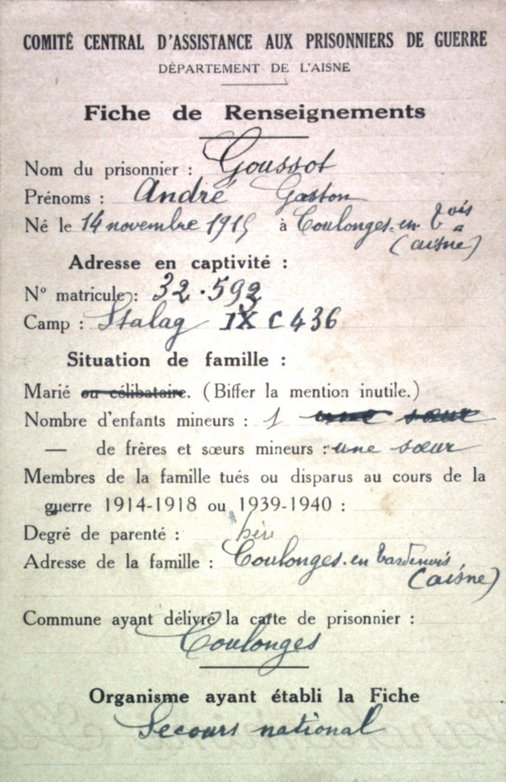 COMITÉ CENTRAL D'ASSISTANCE AUX PRISONNIERS DE GUERRE
DÉPARTEMENT DE L'AISNE
Fiche de Renseignements
Nom du prisonnier : Goussot
Prénoms : André Gaston
Né le 14 novembre 191 à Coulonges-en-
(aisne)
Adresse en captivité :
N° matricule : 32.593
Camp : Stalag IX C 436
Situation de famille :
Marié ou célibataire. (Biffer la mention inutile.)
Nombre d'enfants mineurs : 1 une sœur
— de frères et sœurs mineurs : une sœur
Membres de la famille tués ou disparus au cours de la
guerre 1914-1918 ou 1939-1940 :
Degré de parenté :
Adresse de la famille : Coulonges-en-Tardenois
(aisne)
Commune ayant délivré la carte de prisonnier :
Coulonges
Organisme ayant établi la Fiche
Secours national